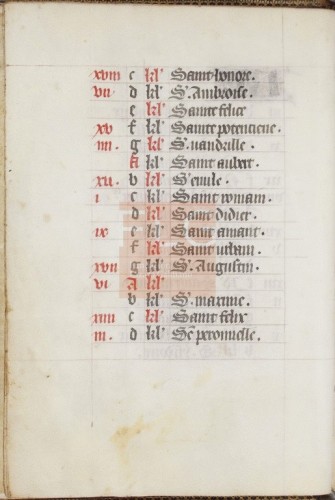 xviii c kl' Saint honore.
vii. d kl' S'. Ambroise.
e kl' Sainte felice
xv f kl' Sainte potenciene.
iiii. g kl' S'. vandrille.
A kl' Saint aubert.
xii. b kl' S' emile.
i c kl' Saint romain.
d kl' Saint didier.
ix e kl' Saint amant.
f kl' Saint urbain.
xvii g kl' S'. Augustin.
vi A kl'
b kl' S'. maxime.
xiiii c kl' Saint felix
iii. d kl' Se peronnelle.